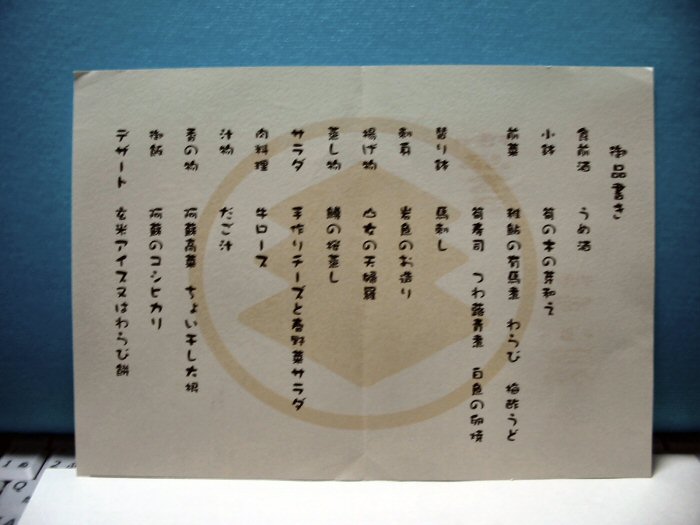 御品書き
食前酒 うめ酒
小鉢 筍の木の芽和え
前菜 稚鮎の有馬煮 わらび 梅酢うど
筍寿司 つわ蕗青煮 白魚の卵焼
替り鉢 馬刺し
刺身 岩魚のお造り
揚げ物 山女の天婦羅
蒸し物 鱒の桜蒸し
サラダ 手作りチーズと春野菜サラダ
肉料理 牛ロース
汁物 だご汁
香の物 阿蘇高菜 ちょい干し大根
御飯 阿蘇のコシヒカリ
デザート 玄米アイス又はわらび餅